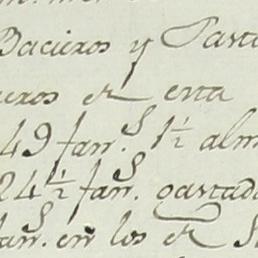 Bacieros y Past
eros de esta
49 fan.s 1½ alm
24½ fan.s gastad
fan.s en los de S